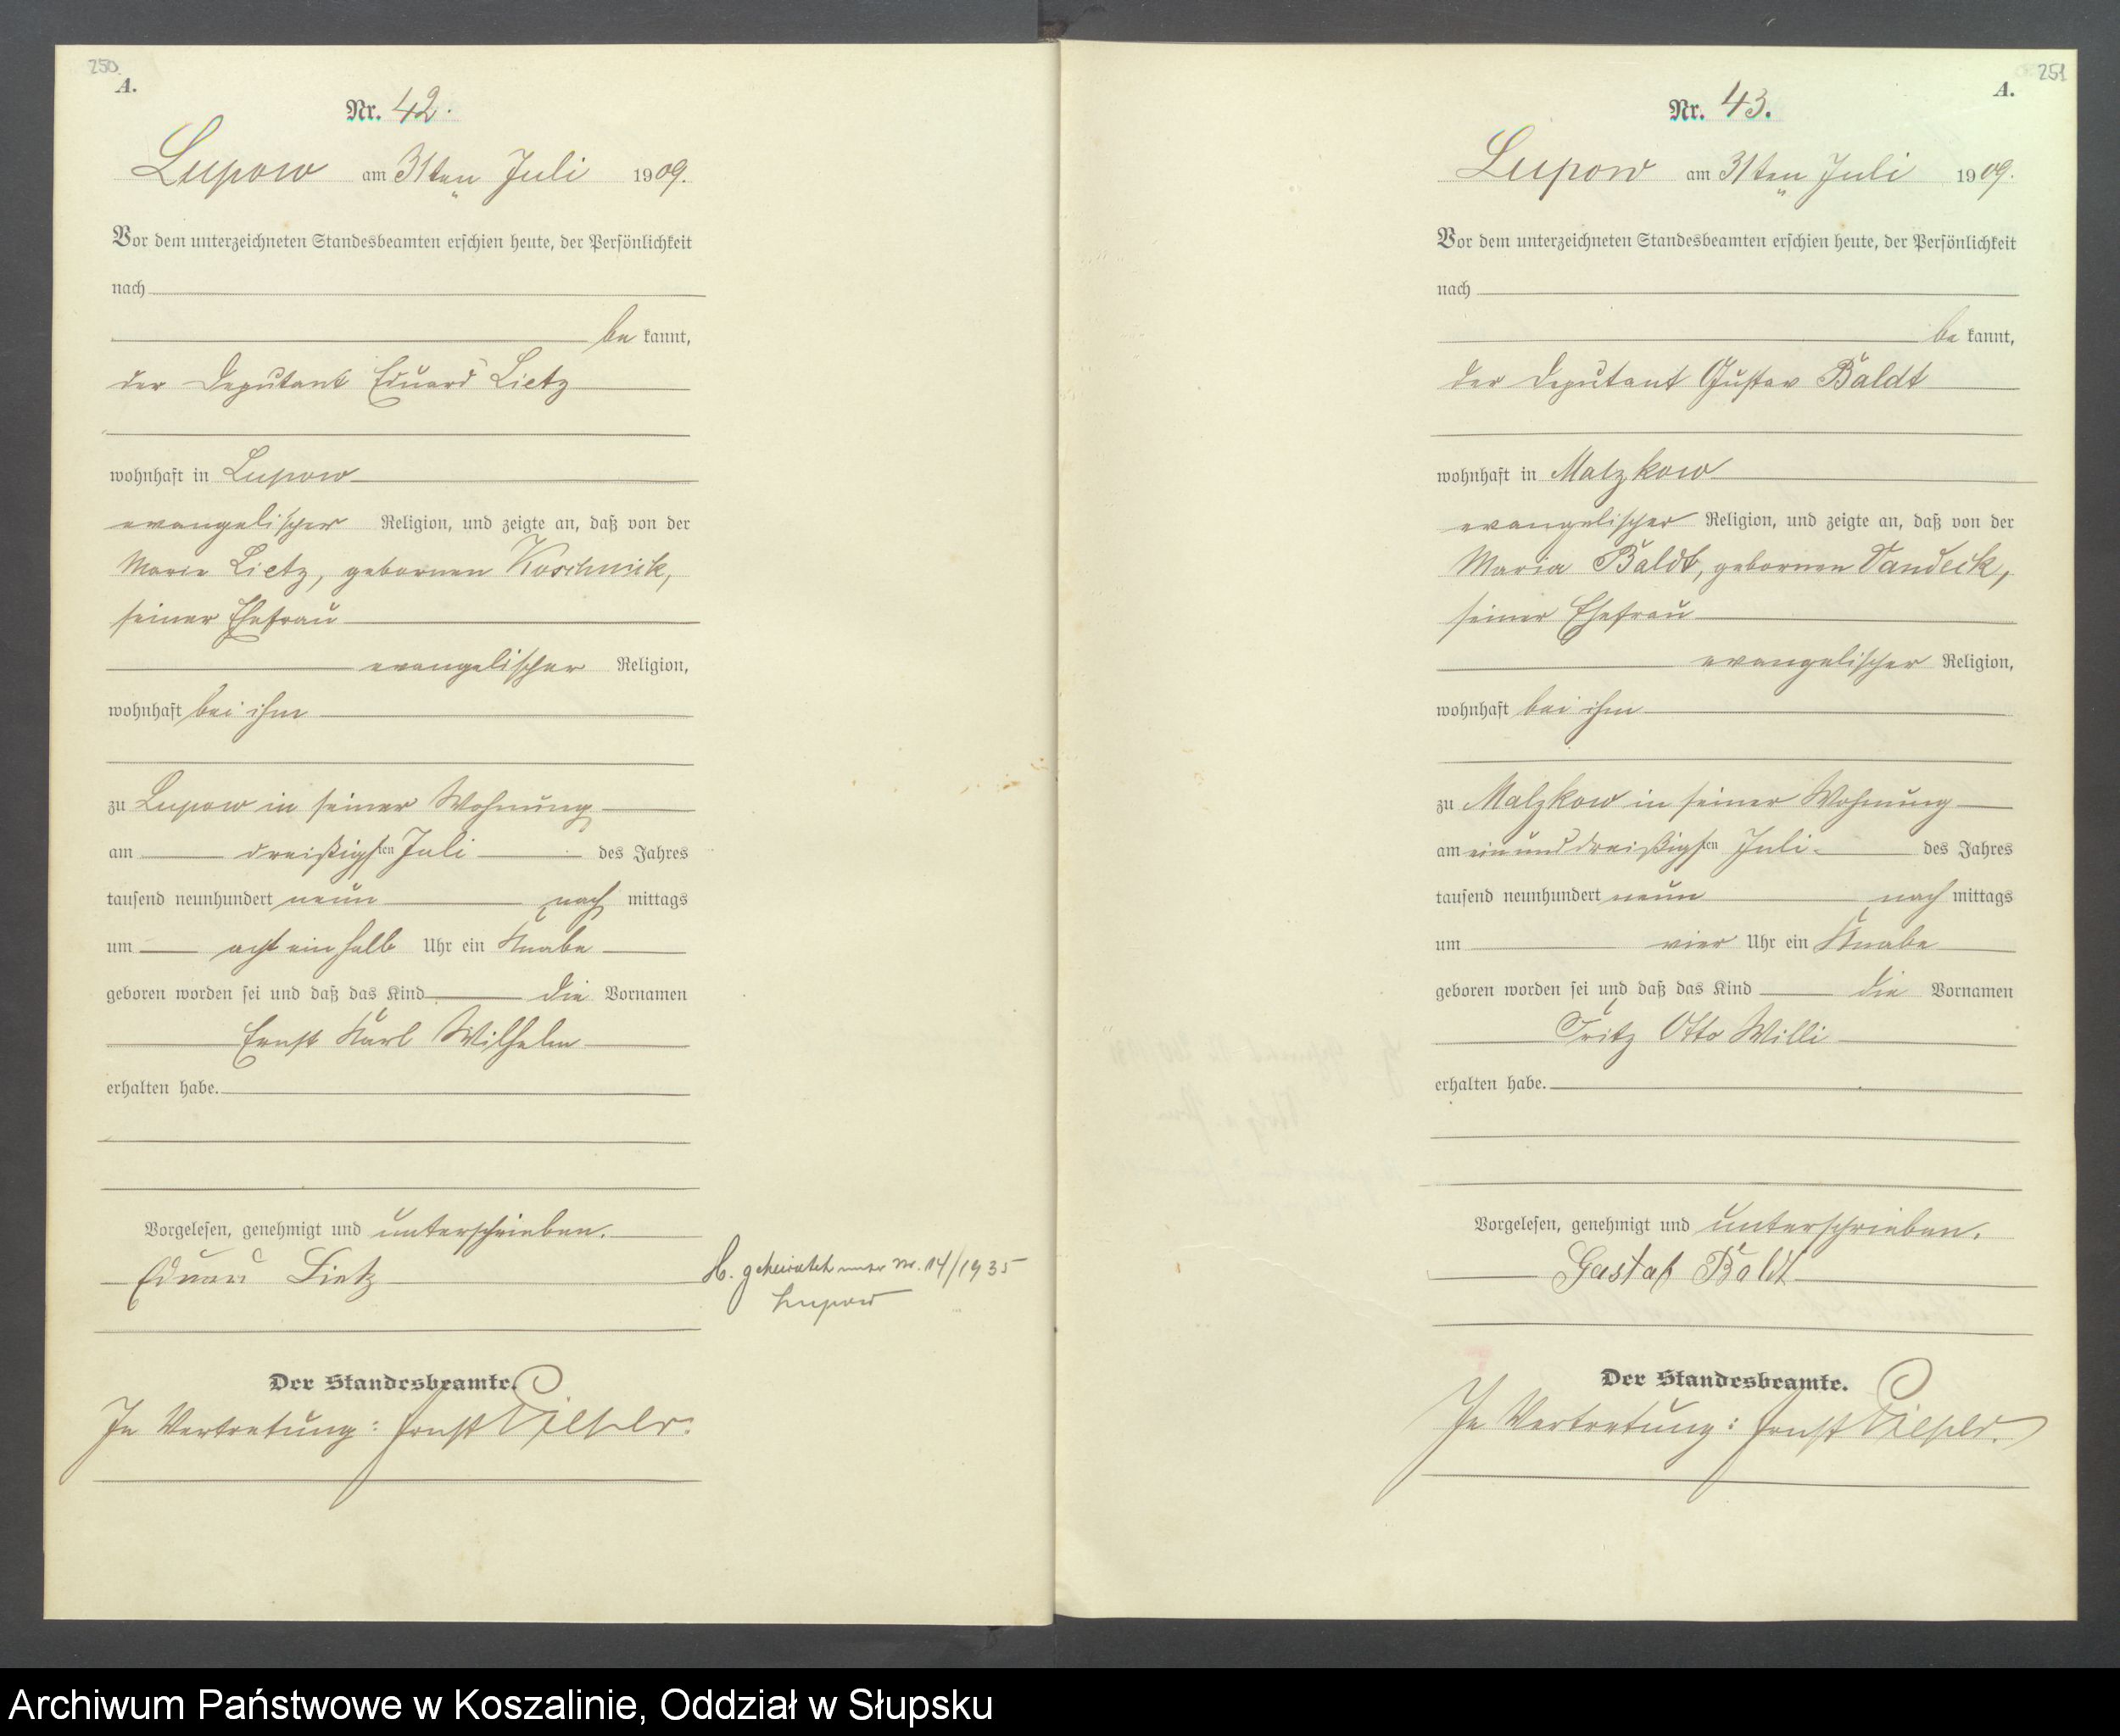 250
A.
Nr. 42.
Lupow am 31ten Juli 1909.
Vor dem unterzeichneten Standesbeamten erschien heute, der Persönlichkeit
nach
be kannt,
der Deputant Eduard Lietz
wohnhaft in Lupow
evangelischer Religion, und zeigte an, daß von der
Marie Lietz, gebornen Koschnick,
seiner Ehefrau
evangelischer Religion,
wohnhaft bei ihm
zu Lupow in seiner Wohnung
am dreißigsten Juli des Jahres
tausend neunhundert neun nach mittags
um acht ein halb Uhr ein Knabe
geboren worden sei und daß das Kind die Vornamen
Ernst Karl Wilhelm
erhalten habe.
Vorgelesen, genehmigt und unterschrieben.
Eduard Lietz
H. geheiratet unter Nr. 14/1935
Lupow
Der Standesbeamte.
In Vertretung: Ernst
251
A.
Nr. 43.
Lupow am 31ten Juli 1909.
Vor dem unterzeichneten Standesbeamten erschien heute, der Persönlichkeit
nach
be kannt,
der Deputant Gustav Baldt
wohnhaft in Malzkow
evangelischer Religion, und zeigte an, daß von der
Maria Baldt, gebornen
seiner Ehefrau
evangelischer Religion,
wohnhaft bei ihm
zu Malzkow in seiner Wohnung
am einunddreißigsten Juli des Jahres
tausend neunhundert neun nach mittags
um vier Uhr ein Knabe
geboren worden sei und daß das Kind die Vornamen
Fritz Otto Willi
erhalten habe.
Vorgelesen, genehmigt und unterschrieben.
Gustaf Baldt
Der Standesbeamte.
In Vertretung: Ernst
Archiwum Państwowe w Koszalinie, Oddział w Słupsku